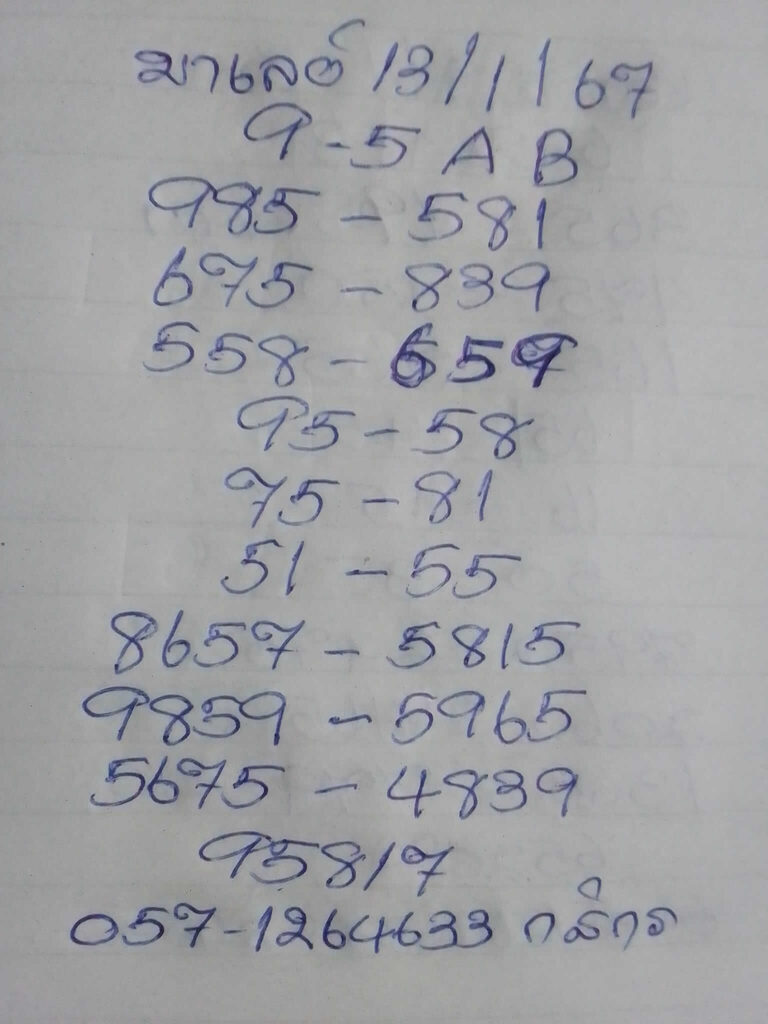 มาเลย์ 13/1/67
9-5 A B
985-581
675-839
558-659
95-58
75-81
51-55
8657-5815
9859-5965
5675-4839
95817
057-1264633 กสิกร